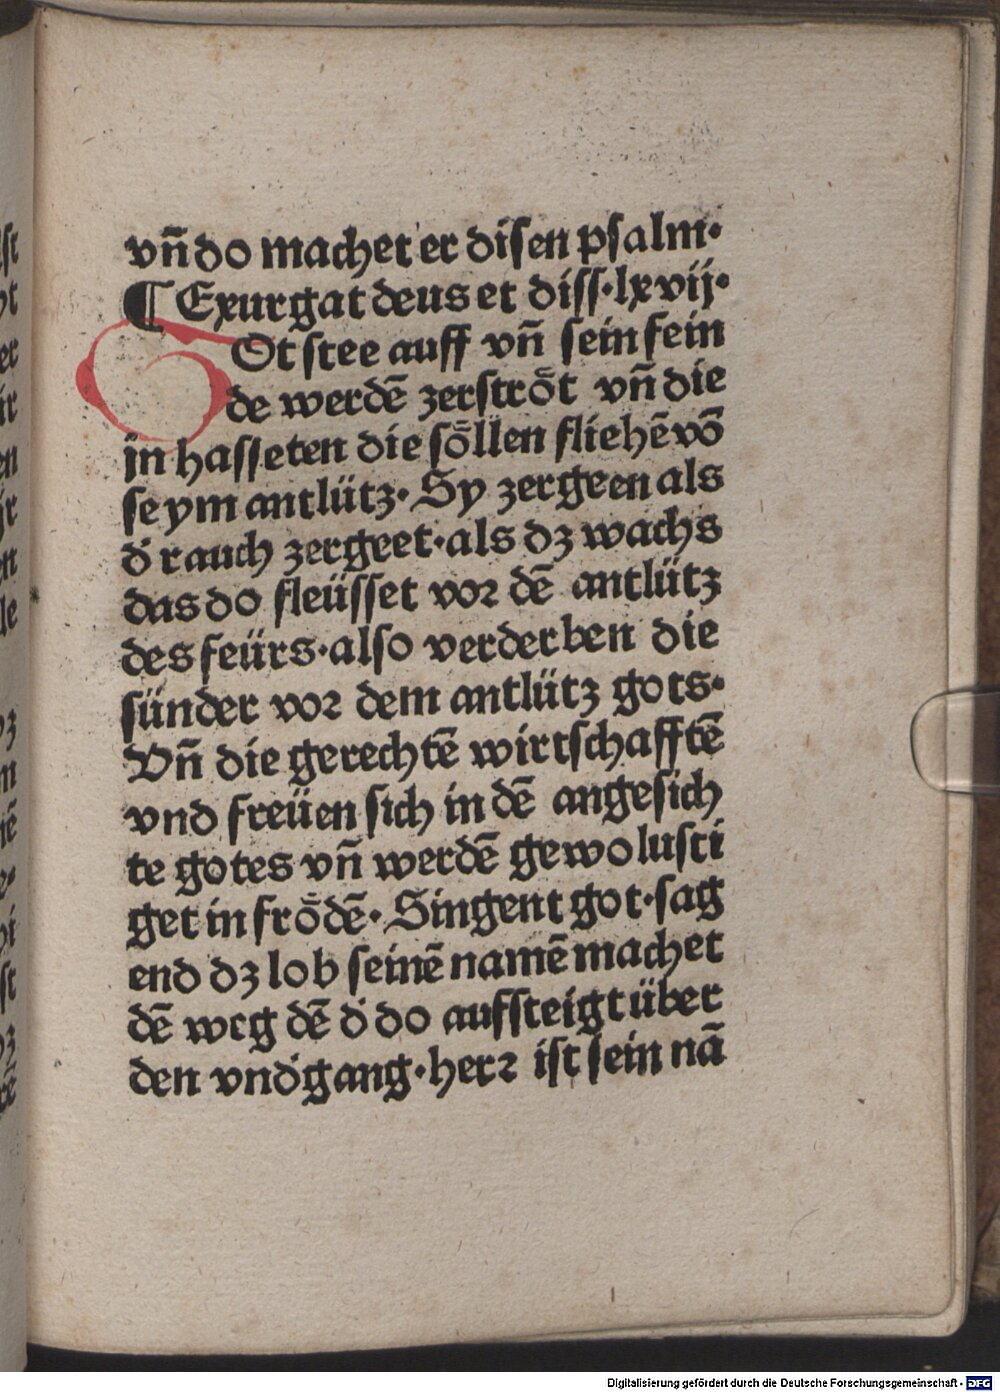 vñ do machet er disen psalm·
¶ Exurgat deus et diss·lxvij·
GOt stee auff vñ sein fein
de werdē zerströt vñ die
in hasseten die söllen fliehē vō
seym antlütz· Sy zergeen als
d' rauch zergeet·als dz wachs
das do fleüsset vor dē antlütz
des feürs·also verderben die
sünder vor dem antlütz gots·
Vñ die gerechtē wirtschafftē
vnd freüen sich in dē angesich
te gotes vñ werdē gewolusti
get in frödē· Singent got·sag
end dz lob seinē namē machet
dē weg dē d' do aufsteigt über
den vnd'gang·herr ist sein nā
Digitalisierung gefördert durch die Deutsche Forschungsgemeinschaft - DFG